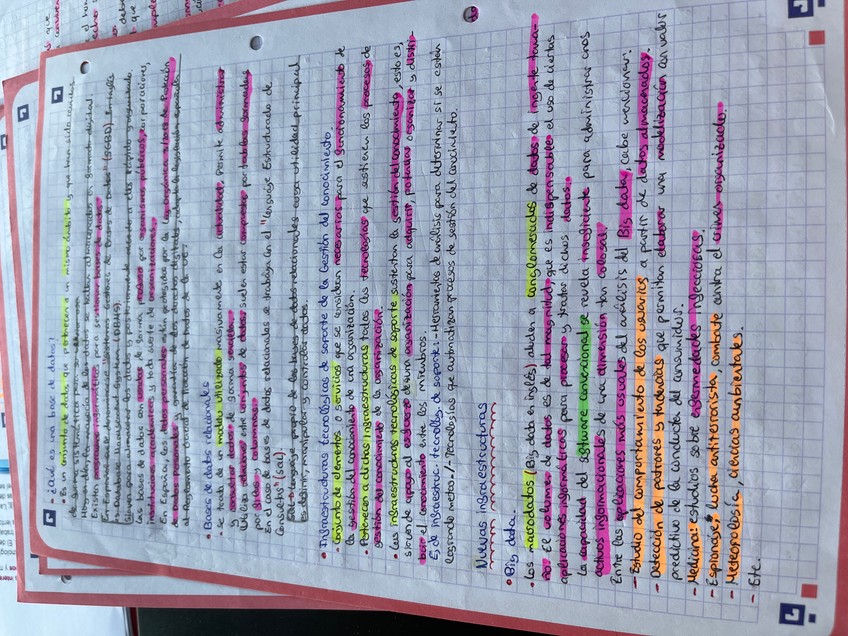 • ¿Qué es una base de datos?
• Es un conjunto de datos que pertenecen a un mismo ámbito y que han sido
de forma sistemática para
Hoy en día, la mayoría de las bases se hallan almacenados en formato digital.
Existen programas informáticos para gestionar bases de datos.
En España se denominan "Sistemas Gestores de Bases de Datos" (SGBD). En inglés
es Database Management System (DBMS).
Sirven para almacenar los datos y posteriormente acceder a ellos rápido y seguro.
Las bases de datos son usadas de forma profusa por organismos públicos, corporaciones,
instituciones académicas y toda suerte de organizaciones.
En España, los datos personales están protegidos por la Ley Orgánica 3/2018 de Protección
de Datos Personales y garantía de los derechos digitales, adapta la legislación española
al Reglamento General de Protección de Datos de la UE.
• Bases de datos relacionales
- Se trata de un modelo utilizado masivamente en la actualidad. Permite administrar
y consultar datos de forma sencilla.
Utiliza relaciones entre conjuntos de datos. Suelen estar compuestos por tablas formadas
por filas y columnas.
En el caso de bases de datos relacionales se trabaja con el "Lenguaje Estructurado de
Consultas" (SQL).
Es el lenguaje propio de las bases de datos relacionales cuya utilidad principal
es definir, manipular y controlar datos.
• Infraestructuras tecnológicas de soporte de la Gestión del conocimiento.
- Conjunto de elementos o servicios que se consideran necesarios para el funcionamiento de
la gestión del conocimiento de una organización.
• Pertenecen a dichas infraestructuras todas las tecnologías que sostienen los procesos de
gestión del conocimiento de la organización.
• Las infraestructuras tecnológicas de soporte sustentan la gestión del conocimiento, esto es,
sirven de apoyo al usuario de una organización para adquirir, potenciar, organizar y distri-
buir el conocimiento entre los miembros.
Ej de infraestruc. tecnológ. de soporte: - Herramientas de análisis para determinar si se están
logrando metas. / - Tecnologías que automatizan procesos de gestión del conocimiento.
Nuevas infraestructuras
• Big data.
• Los macrodatos (Big data en inglés) aluden a conglomerados de datos de ingente tama-
ño. El volumen de datos es de tal magnitud que es indispensable el uso de ciertas
aplicaciones informáticas para procesar y tratar dichos datos.
La capacidad del software convencional se revela insuficiente para administrar unos
activos informacionales de una dimensión tan colosal.
Entre las aplicaciones más usuales del análisis del Big data, cabe mencionar:
- Estudio del comportamiento de los usuarios a partir de datos almacenados.
- Detección de patrones y tendencias que permitan elaborar una modelización con valor
predictivo de la conducta del consumidor.
- Medicina: estudios sobre enfermedades infecciosas.
- Espionaje, lucha antiterrorista, combate contra el crimen organizado.
- Meteorología, ciencias ambientales.
- Etc.